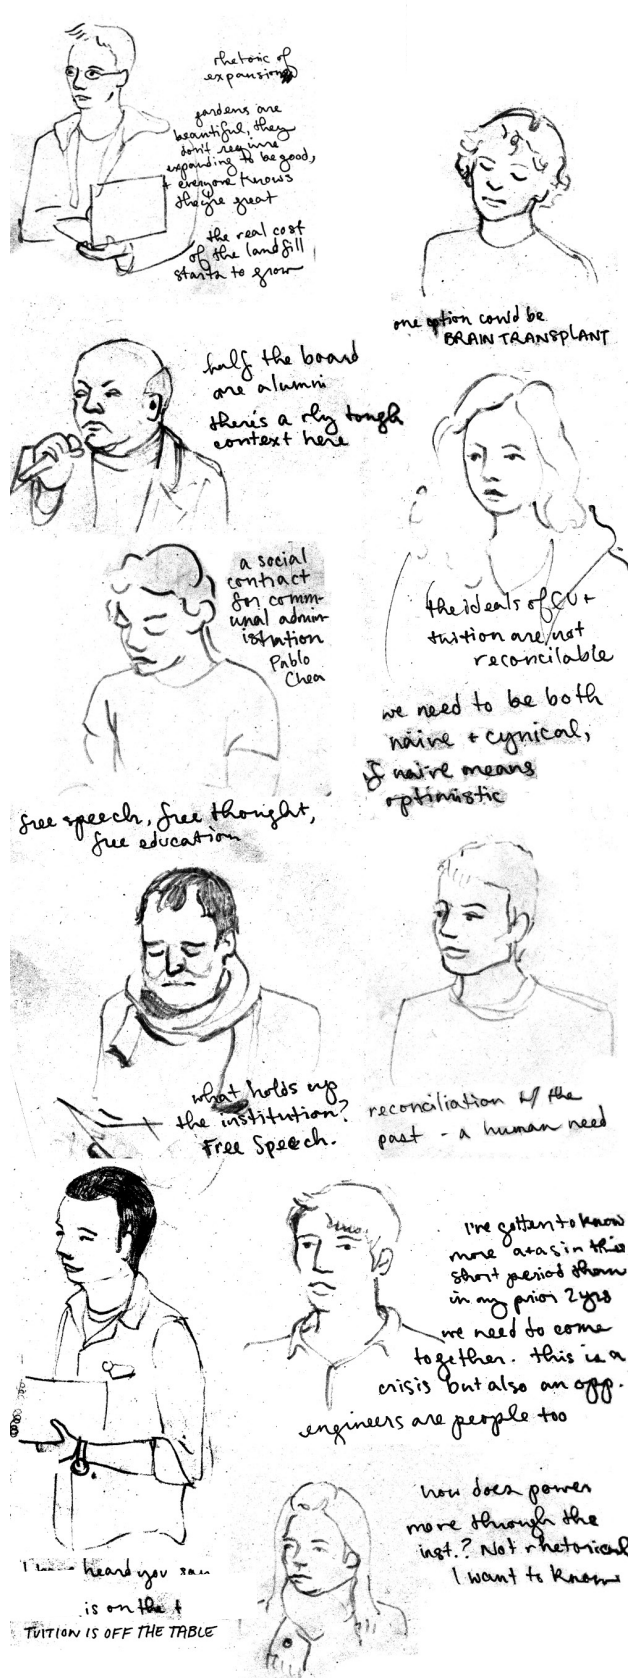 rhetoric of
expansion
gardens are
beautiful, they
don't require
expanding to be good,
+ everyone knows
they're great
the real cost
of the landfill
starts to grow
one option could be
BRAIN TRANSPLANT
half the board
are alumni
there's a rly tough
context here
a social
contract
for comm-
unal admin-
istration
Pablo
Chea
the ideals of CU +
tuition are not
reconcilable
we need to be both
naive + cynical,
if naive means
optimistic
free speech, free thought,
free education
what holds up
the institution?
Free Speech.
reconciliation w/ the
past - a human need
I've gotten to know
more a+as in this
short period than
in my prior 2 yrs
we need to come
together. this is a
crisis but also an opp.
engineers are people too
how does power
move through the
inst.? Not rhetorical
I want to know
I heard you say
is on the t
TUITION IS OFF THE TABLE